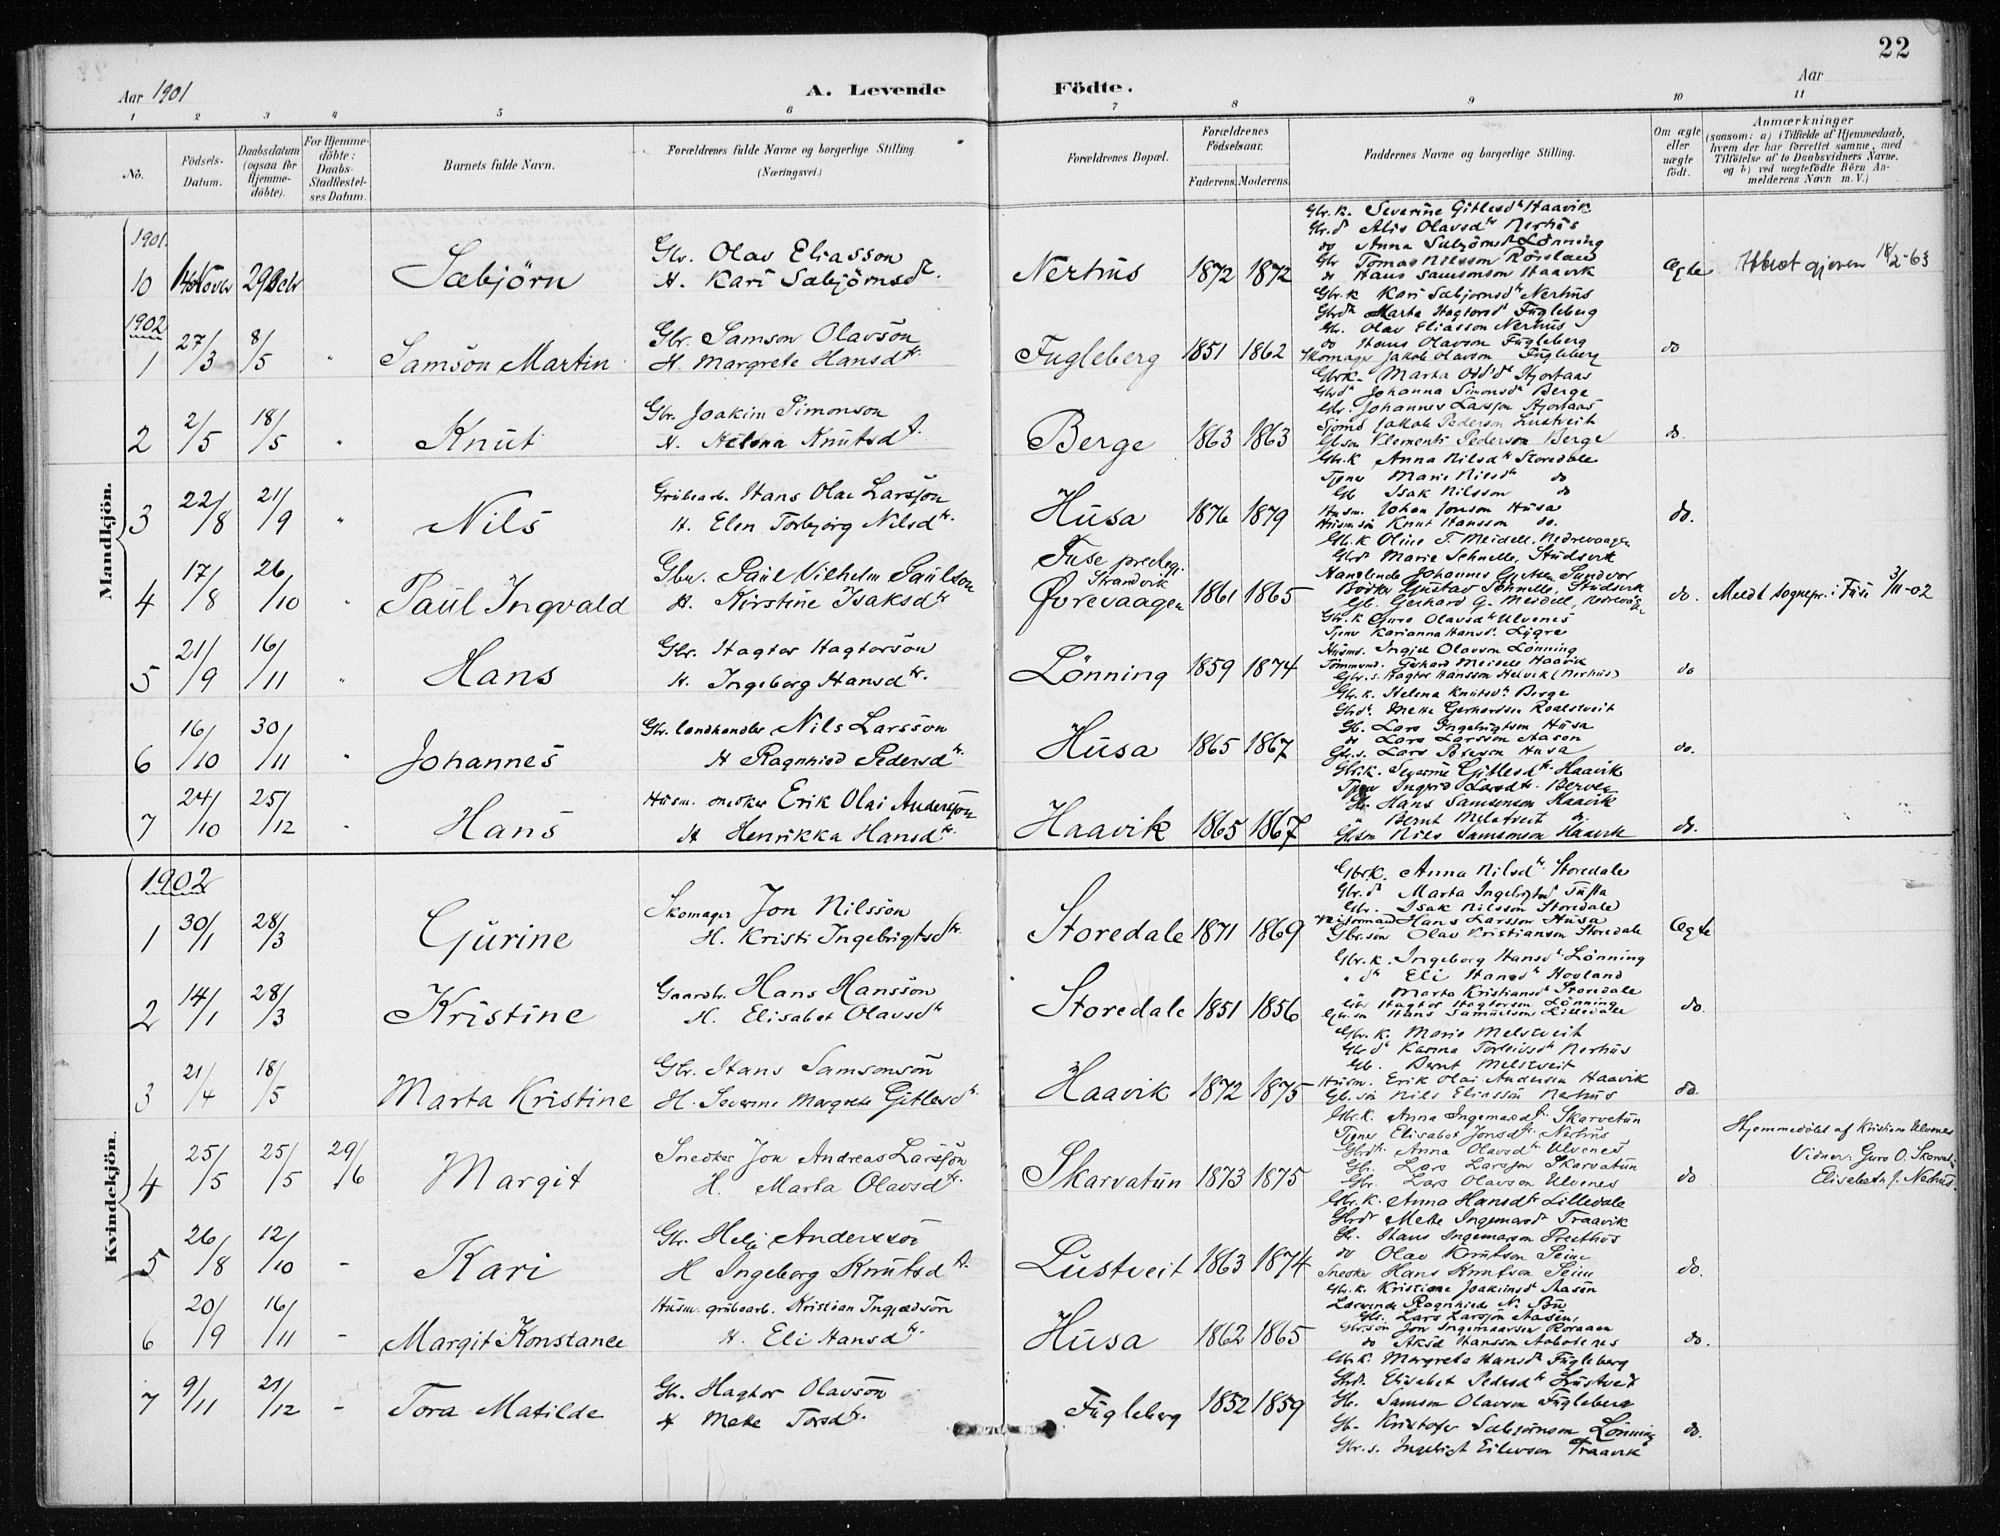 22
Aar 1901
A. Levende Födte.
Aar
1 2 3 4 5 6 7 8 9 10 11
No.
Födsels-Datum.
Daabsdatum (ogsaa for Hjemme-döbte).
For Hjemme-döbte: Daabs-Stadfæstel-ses Datum.
Barnets fulde Navn.
Forældrenes fulde Navne og borgerlige Stilling. (Næringsvei.)
Forældrenes Bopæl.
Forældrenes Födselsaar.
Faderens. Moderens.
Faddernes Navne og borgerlige Stilling.
Om ægte eller uægte födt.
Anmærkninger
(saasom: a) i Tilfælde af Hjemmedaab, hvem der har forrettet samme, med Tilföielse af to Daabsvidners Navne, og b) ved uægtefödte Börn An-melderens Navn m. V.)
Mandkjön.
1901
10 14 Novbr 29 Decbr Sæbjörn
Gbr. Olav Eliasson
H. Kari Sæbjörnsdtr.
Nerhus 1872 1872
Gbr.k. Severine Gitlesdtr Haavik
Gbr.dtr Alis Olavsdtr Nerhus
do Anna Sæbjörnsdtr Lönning
Gbr Tomas Nilsson
do Hans Samsonson Haavik
Ægte
18/2-63
1902
1 27/3 8/5 " Samson Martin
Gbr. Samson Olavson
H. Margrete Hansdtr.
Fugleberg 1851 1862
Gbr.k Kari Sæbjornsdtr Nerhus
Gbrdtr Marta Hagtorsd Fugleberg
Gbr. Olav Eliasson Nerhus
do Hans Olavson Fugleberg
Skomager Jakob Olavson Fugleberg
do
2 2/5 18/5 " Knut
Gbr. Joakim Simonson
H. Helena Knutsdtr.
Berge 1863 1863
Gbrk. Marta Hjortaas
Gbrdtr Johanna Simonsdtr Berge
Gbr. Johannes Larsson Hjortaas
Jakob Pederson Lustveit
Gbson Klement Pederson Berge
do.
3 22/8 21/9 " Nils
Grubearb. Hans Olai Larsson
H. Elen Torbjörg Nilsdtr.
Husa 1876 1879
Gbr.K Anna Nilsdtr Storedale
Tjener Marie Nilsdtr do
Gb Isak Nilsson do
Husm. Johan Jonson Husa
Husm.sön Knut Hansson do.
do.
4 17/8 26/10 " Paul Ingvald
Gbr. Paul Vilhelm Paulson
H. Kirstine Isaksdtr
Fuse prestegj.
Strandvik
Övrevaagen 1861 1865
Gb.k Oline T. Meidell, Nedrevaagen
Gbrd Marie Schnelle, Studsvik
Handlende Johannes Sundvor
Bödker Gustav Schnelle, Studsvik
Gb. Gerhard G. Meidell, Nedrevaagen
do. Meldt sognepr. i Fuse 3/11-02
5 21/9 16/11 " Hans
Gbr. Hagtor Hagtorson
H. Ingeborg Hansdtr.
Lönning 1859 1874
Gbr.K Guro Olavsdtr Ulvenes
Tjener Karianna Hansd. Lygre
Husm. Olavson Lönning
Gerhard Meidell Haavik
Gbr.s. Hagtor Hansson Helvik (Nerhus)
do
6 16/10 30/11 " Johannes
Gbr. landhandler Nils Larsson
H Ragnhild Pedersdtr.
Husa 1865 1867
Gbr.k. Helena Knutsdtr Berge
Gbrdtr. Mette Gerhardsen
Gb. Lars Ingebrigtson Husa
do Lars Larsson Aasen
Gbr.s. Lars Husa
do.
7 24/10 25/12 " Hans
Husm. snedker Erik Olai Anderson
H Henrikka Hansdtr.
Haavik 1865 1867
Gbr.k. Severine Gitlesdtr. Haavik
Tjener Ingrid Larsdtr. Berve
Gbr. Hans Samsonson Haavik
" Bernt Melstveit
Gbrson Nils Samsonson Haavik
do.
Kvindekjön.
1902
1 30/1 28/3 Gurine
Skomager Jon Nilsson
H. Kristi Ingebrigtsdtr.
Storedale 1871 1869
Gbrk. Anna Nilsdtr Storedale
Gbr.dtr Marta Ingebrigtsd Tufta
Gbr. Isak Nilsson Storedale
Hans Larsson Husa
Gbr.sön Olav Kristianson Storedale
Ægte
2 14/1 28/3 Kristine
Gaardbr. Hans Hansson
H. Elisabet Olavsdtr
Storedale 1851 1856
Gbr.k. Ingeborg Hansdtr Lönning
" dtr Eli Hansdtr Hovland
" Marta Kristiansdtr Storedale
Gbr Hagtor Hagtorson Lönning
Gbr.sön Hans Samuelson Lilledale
do.
3 21/4 18/5 Marta Kristine
Gbr. Hans Samsonson
H. Severine Margrete Gitlesdtr.
Haavik 1872 1875
Gbr.k. Marie Melstveit
Gbrdtr Karina Torleivsdtr Nerhus
Gb. Bernt Melstveit
Husm. Erik Olai Anderson Haavik
Gb.sön Nils Eliasson Nerhus
do.
4 25/5 25/5 29/6 Margit
Snedker Jon Andreas Larsson
H. Marta Olavsdtr.
Skarvatun 1873 1875
Gbr.K. Anna Ingemarsdtr. Skarvatun
Tjener Elisabet Jonsdtr. Nerhus
Gbrdtr. Anna Olavsdtr Ulvenes
Gbr. Lars Larsson Skarvatun
Gbr. Lars Olavson Ulvenes
do
Hjemmedöbt af Kristiane Ulvenes
Vidner: Guro O. Skarvat.
Elisabeta J. Nerhus.
5 26/8 12/10 - Kari
Gbr. Helje Andersson
H Ingeborg Knutsdtr.
Lustveit 1863 1874
Gbr.K. Anna Hansdtr Lilledale
Gbrdtr Mette Ingemarsdtr Traavik
Gb. Hans Ingemarson Presthus
do Olav Knutson Seim
Snedker Hans Knutson Seim
do.
6 20/9 16/11 - Margit Konstance
Husm. grubearb. Kristian Ingjældson
H. Eli Hansdtr.
Husa 1862 1865
Gbr.k. Kristiane Joakimsd Aasen
Lærerinde Ragnhild N. Bu
Gbr. Lars Larsson Aasen
Gbrsön Jon Ingemarsen
do Aksel Hansson
do.
7 9/11 21/12 - Tora Matilde
Gbr. Hagtor Olavson
H Mette Torsdtr.
Fugleberg 1852 1859
Gbr.k. Margreta Hansdtr Fugleberg
Gbrdtr. Elisabet Pedersdtr Lustveit
Gb. Samson Olavson Fugleberg
Gb. Kristofer Sæbjörnson Lönning
Gbr.s. Ingebrigt Eilevson Traavik
do.